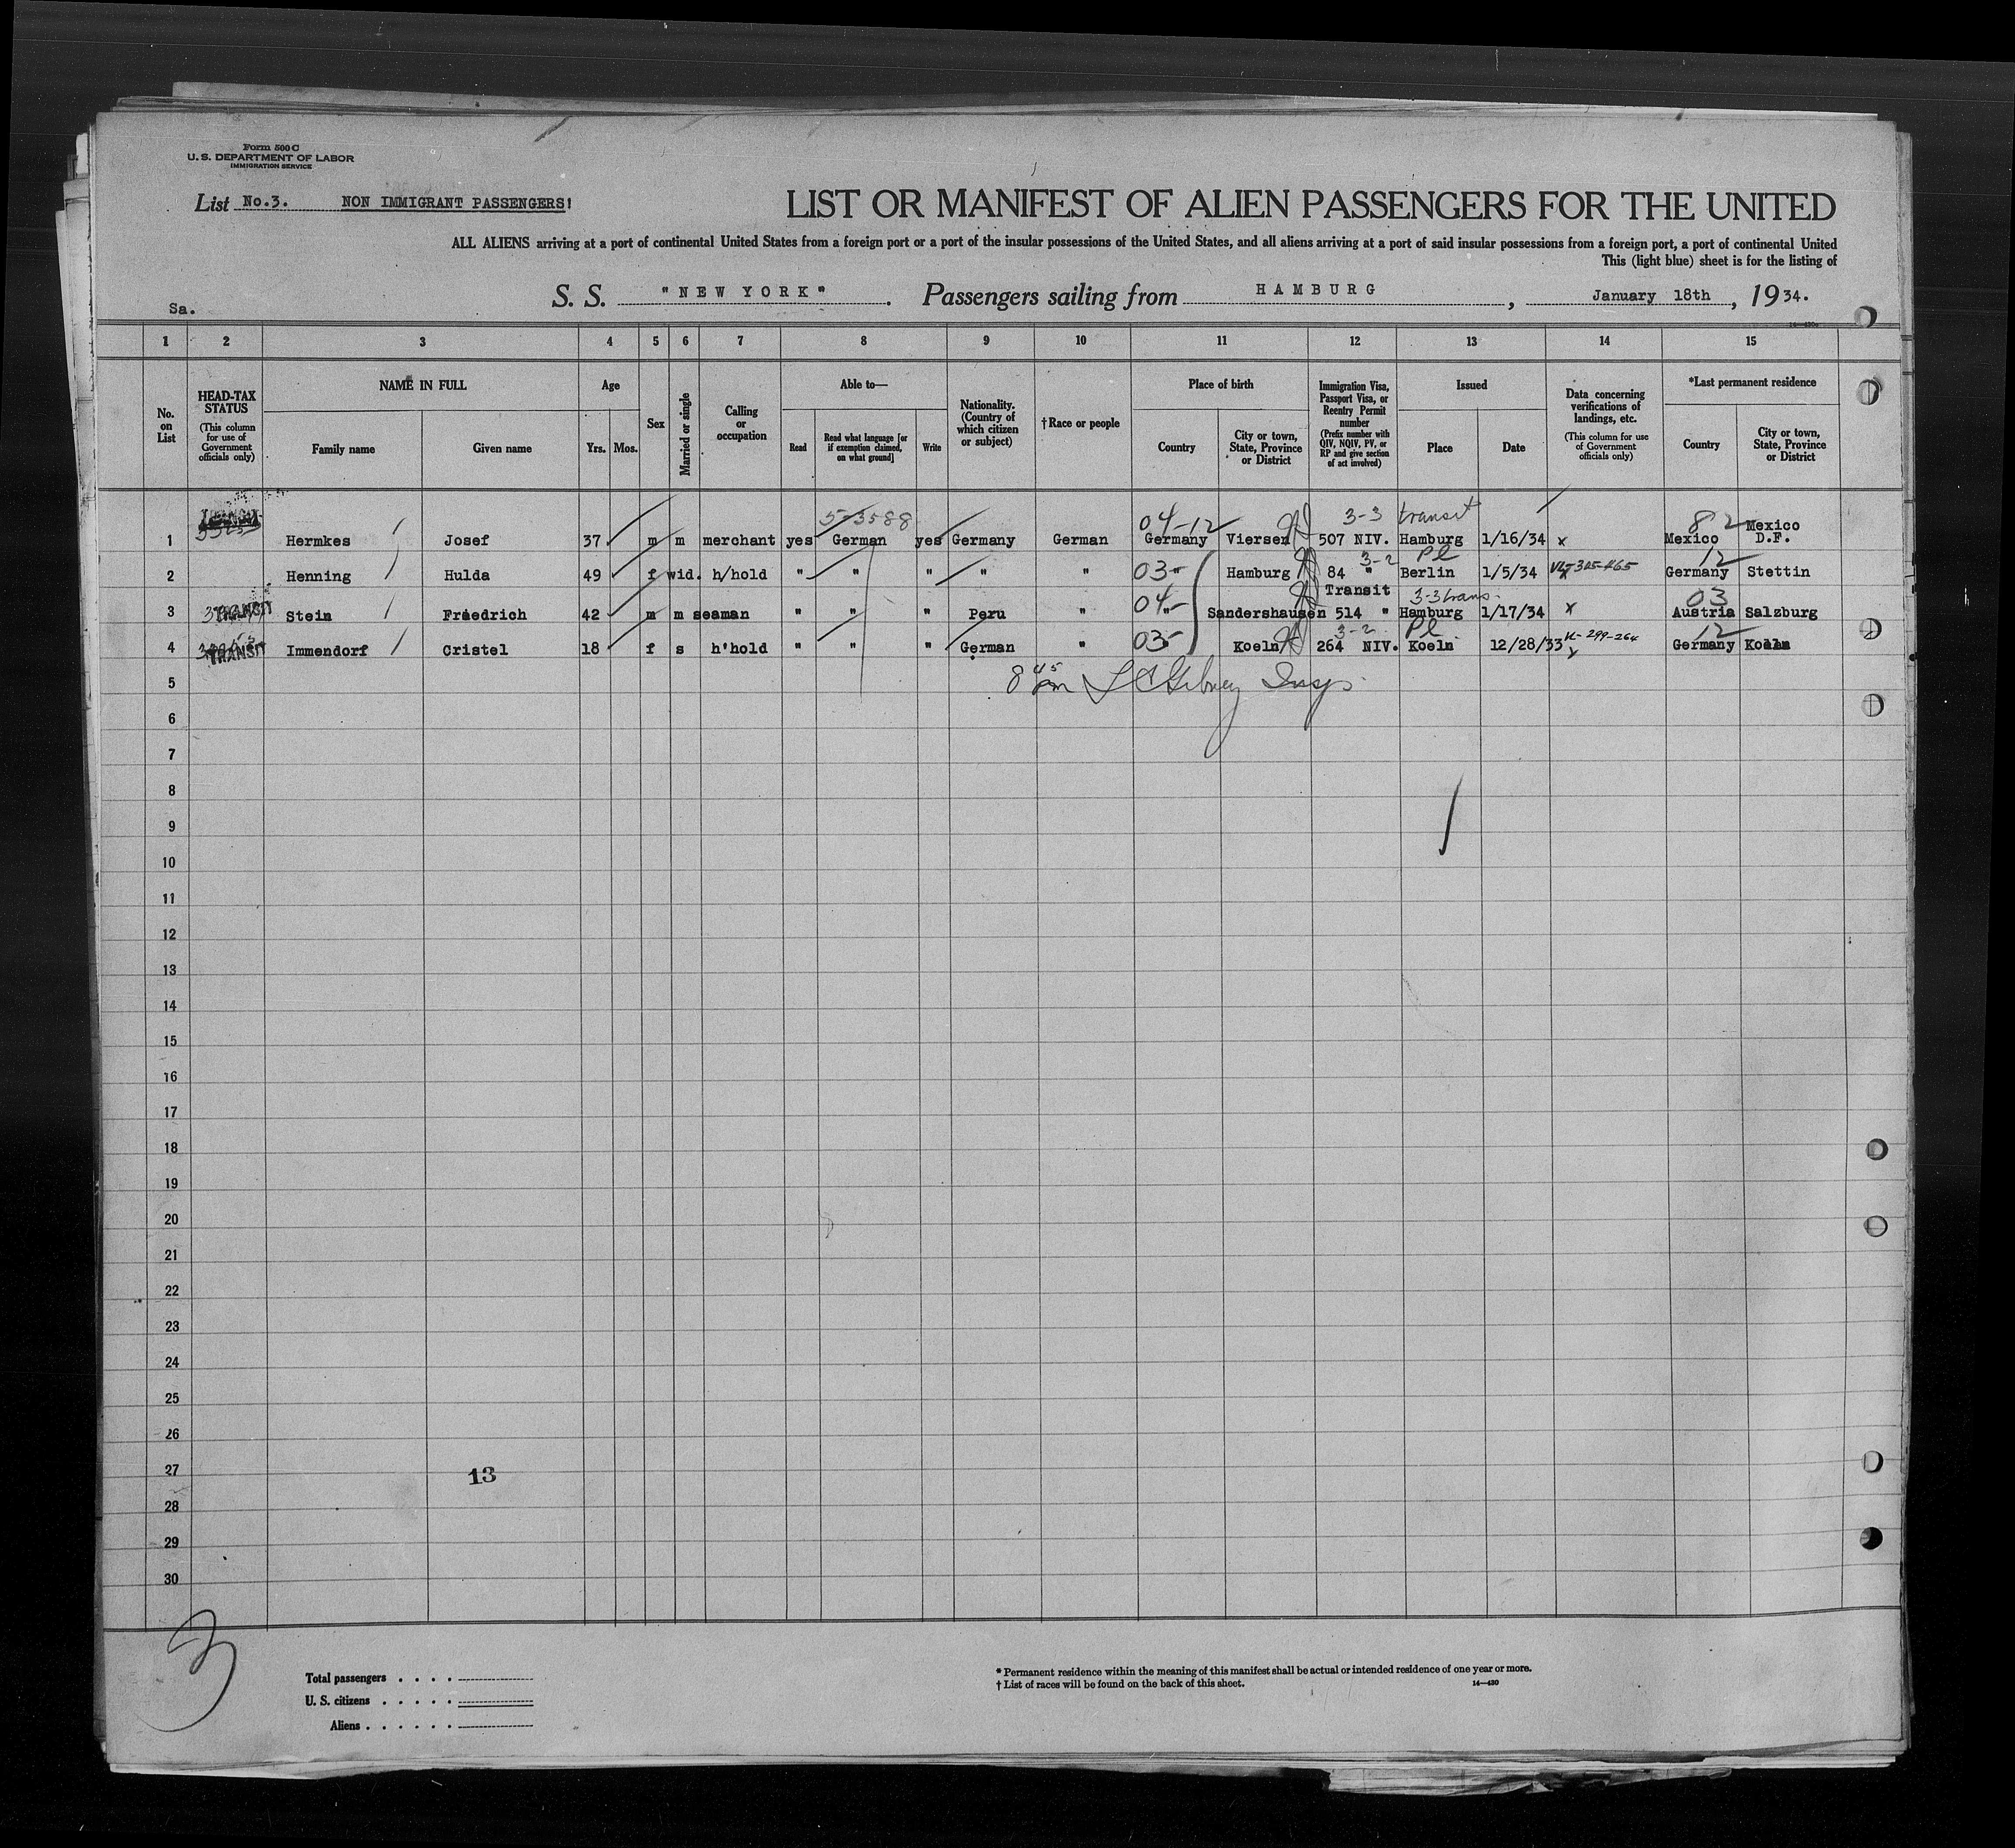 Form 500 C
U. S. DEPARTMENT OF LABOR
IMMIGRATION SERVICE
List No.3. NON IMMIGRANT PASSENGERS!
LIST OR MANIFEST OF ALIEN PASSENGERS FOR THE UNITED
ALL ALIENS arriving at a port of continental United States from a foreign port or a port of the insular possessions of the United States, and all aliens arriving at a port of said insular possessions from a foreign port, a port of continental United
This (light blue) sheet is for the listing of
S. S. "NEW YORK". Passengers sailing from HAMBURG, January 18th, 1934.
Sa.
1 2 3 4 5 6 7 8 9 10 11 12 13 14 15
No. on List
HEAD-TAX STATUS (This column for use of Government officials only)
NAME IN FULL
Family name Given name
Age
Yrs. Mos.
Sex
Married or single
Calling or occupation
Able to—
Read Read what language [or if exemption claimed, on what ground] Write
Nationality. (Country of which citizen or subject)
†Race or people
Place of birth
Country City or town, State, Province or District
Immigration Visa, Passport Visa, or Reentry Permit number (Prefix number with QIV, NQIV, PV, or RP and give section of act involved)
Issued
Place Date
Data concerning verifications of landings, etc. (This column for use of Government officials only)
*Last permanent residence
Country City or town, State, Province or District
TRANSIT 5-3588 04-12 3-3 transit 82 Mexico
1 Hermkes Josef 37 m m merchant yes German yes Germany German Germany Viersen 507 NIV. Hamburg 1/16/34 x Mexico D.F.
3-2 Pl 12
2 Henning Hulda 49 f wid. h/hold " " " " " 03 " Hamburg 84 " Berlin 1/5/34 Germany Stettin
Transit 3-3 trans. 03
3 TRANSIT Stein Friedrich 42 m m seaman " " " Peru " 04 " Sandershausen 514 " Hamburg 1/17/34 x Austria Salzburg
3-2 Pl 12
4 TRANSIT Immendorf Cristel 18 f s h'hold " " " German " 03 Koeln 264 NIV. Koeln 12/28/33 299-264 Germany Koeln
5 8 45 pm Insp.
6
7
8
9
10
11
12
13
14
15
16
17
18
19
20
21
22
23
24
25
26
27 13
28
29
30
3
Total passengers . . . .
U. S. citizens . . . . .
Aliens . . . . . .
* Permanent residence within the meaning of this manifest shall be actual or intended residence of one year or more.
† List of races will be found on the back of this sheet. 14—430